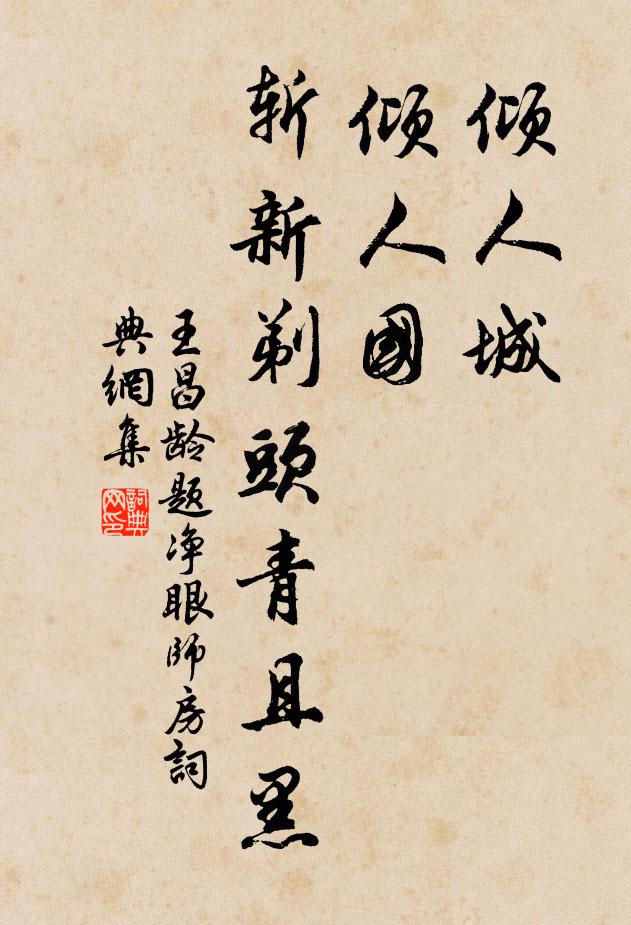 倾人城
倾人國
斩新剃頭青且黑
王昌龄题净眼師房詞
典網集
詞典网印